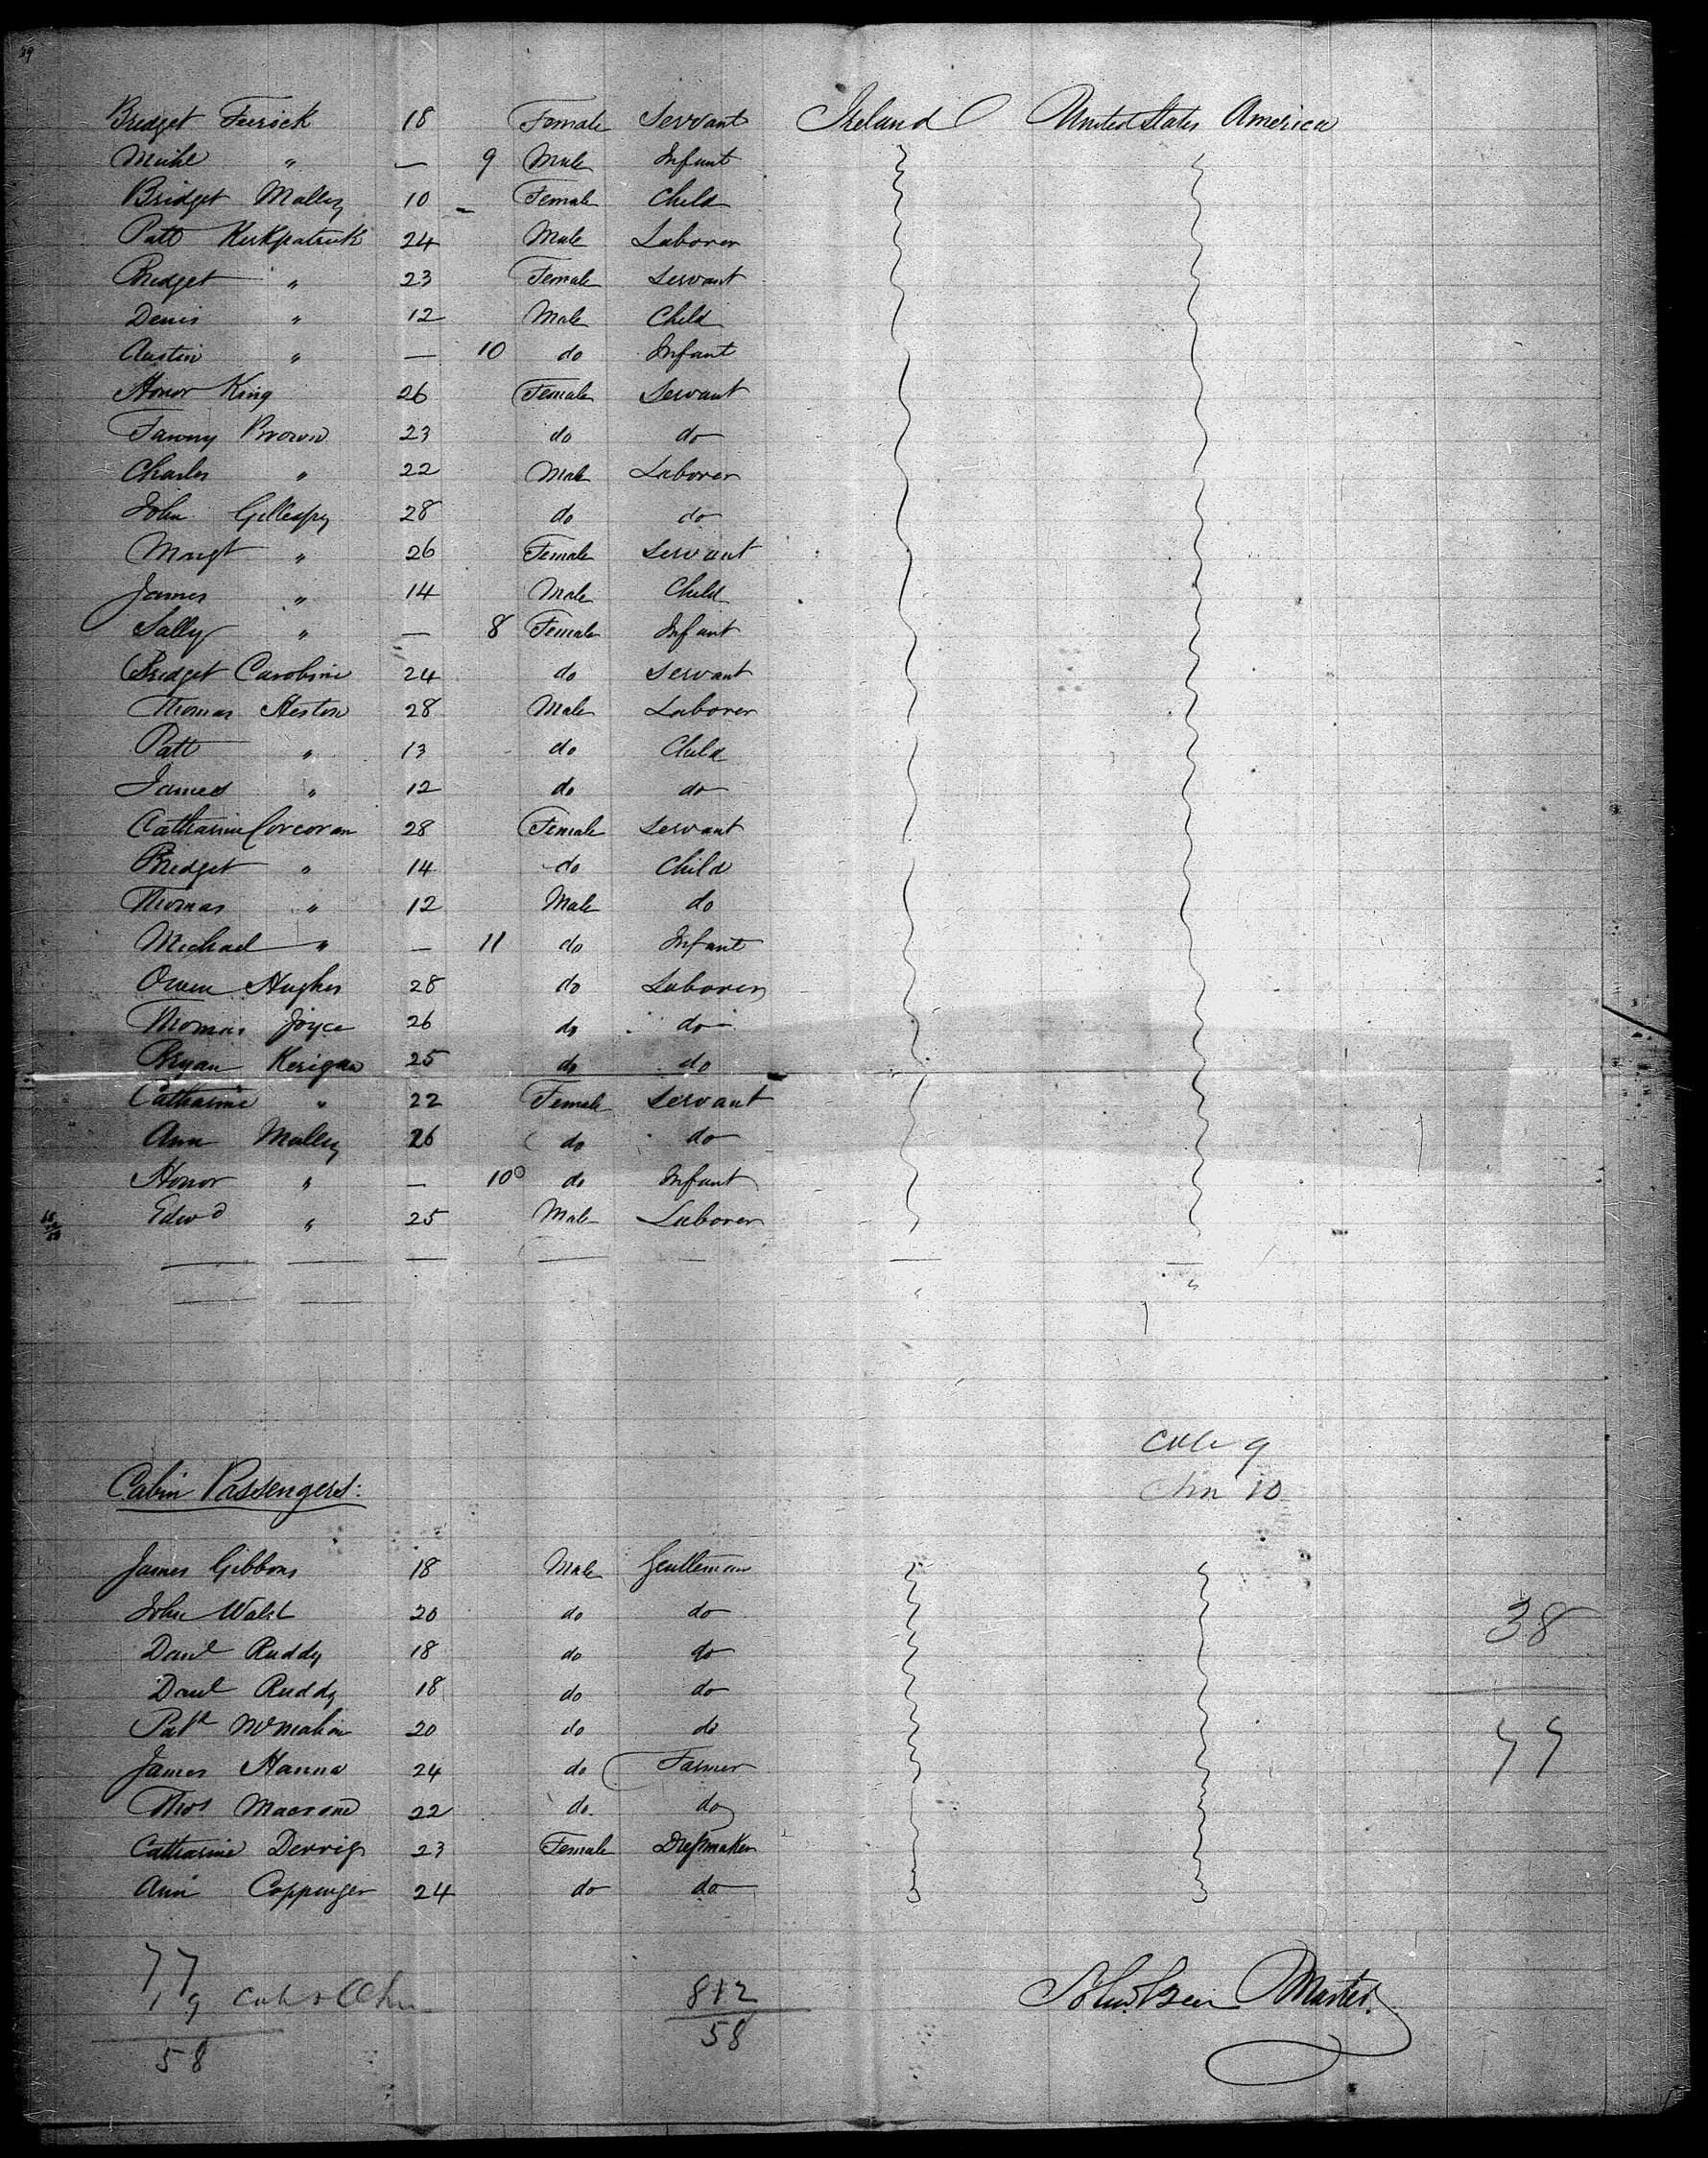 Bridget Feerick 18 Female Servant Ireland United States America
" — 9 Male Infant
Bridget Malley 10 Female Child
Patt Kirkpatrick 24 Male Laborer
Bridget " 23 Female Servant
Denis " 12 Male Child
Austin " — 10 do Infant
Honor King 26 Female Servant
Fanny Brown 23 do do
Charles " 22 Male Laborer
John Gillespy 28 do do
Margt " 26 Female Servant
James " 14 Male Child
Sally " — 8 Female Infant
Bridget 24 do Servant
Thomas Heston 28 Male Laborer
Patt " 13 do Child
James " 12 do do
Catharine Corcoran 28 Female Servant
Bridget " 14 do Child
Thomas " 12 Male do
Michael " — 11 do Infant
Owen Hughes 28 do Laborer
Thomas Joyce 26 do do
Bryan Kerigan 25 do do
Catharine " 22 Female Servant
Ann Malley 26 do do
Honor " — 10 do Infant
Edwd " 25 Male Laborer
9
10
Cabin Passengers:
James Gibbons 18 Male Gentleman
John Walsh 20 do do
Danl Ruddy 18 do do
Danl Ruddy 18 do do
Patk McMahon 20 do do
James Hanna 24 do Farmer
Thos 22 do do
Catharine Derrig 23 Female Dressmaker
Ann Coppinger 24 do do
38
77
19
58
58
Master